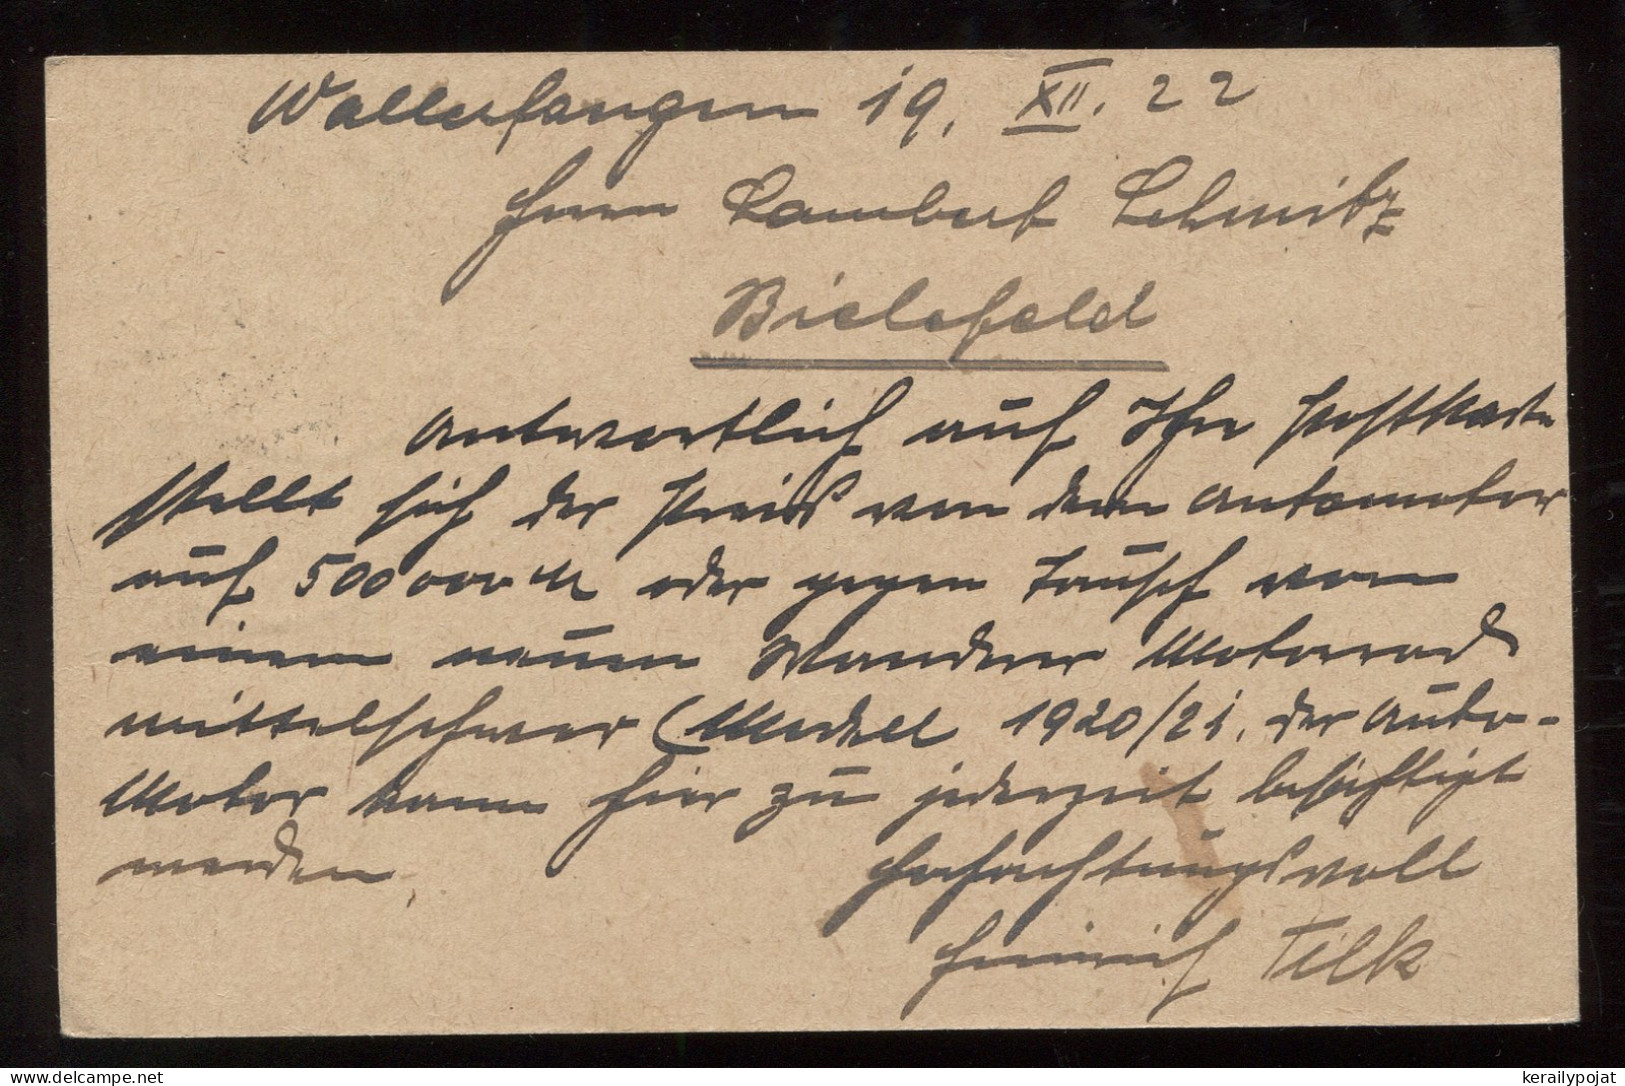 Wallerfangen 19. XII. 22
Herrn Lambert Schmitz
Bielefeld
Antwortlich auf Ihre Postkarte
stellt sich der Preis von dem Automotor
auf 500 000 M oder gegen Tausch von
einem neuen Wanderer Motorrad
mittelschwer (Modell 1920/21. der Auto-
Motor kann hier zu jederzeit besichtigt
werden.
Hochachtungsvoll
Heinrich Tilk
kerailypojat